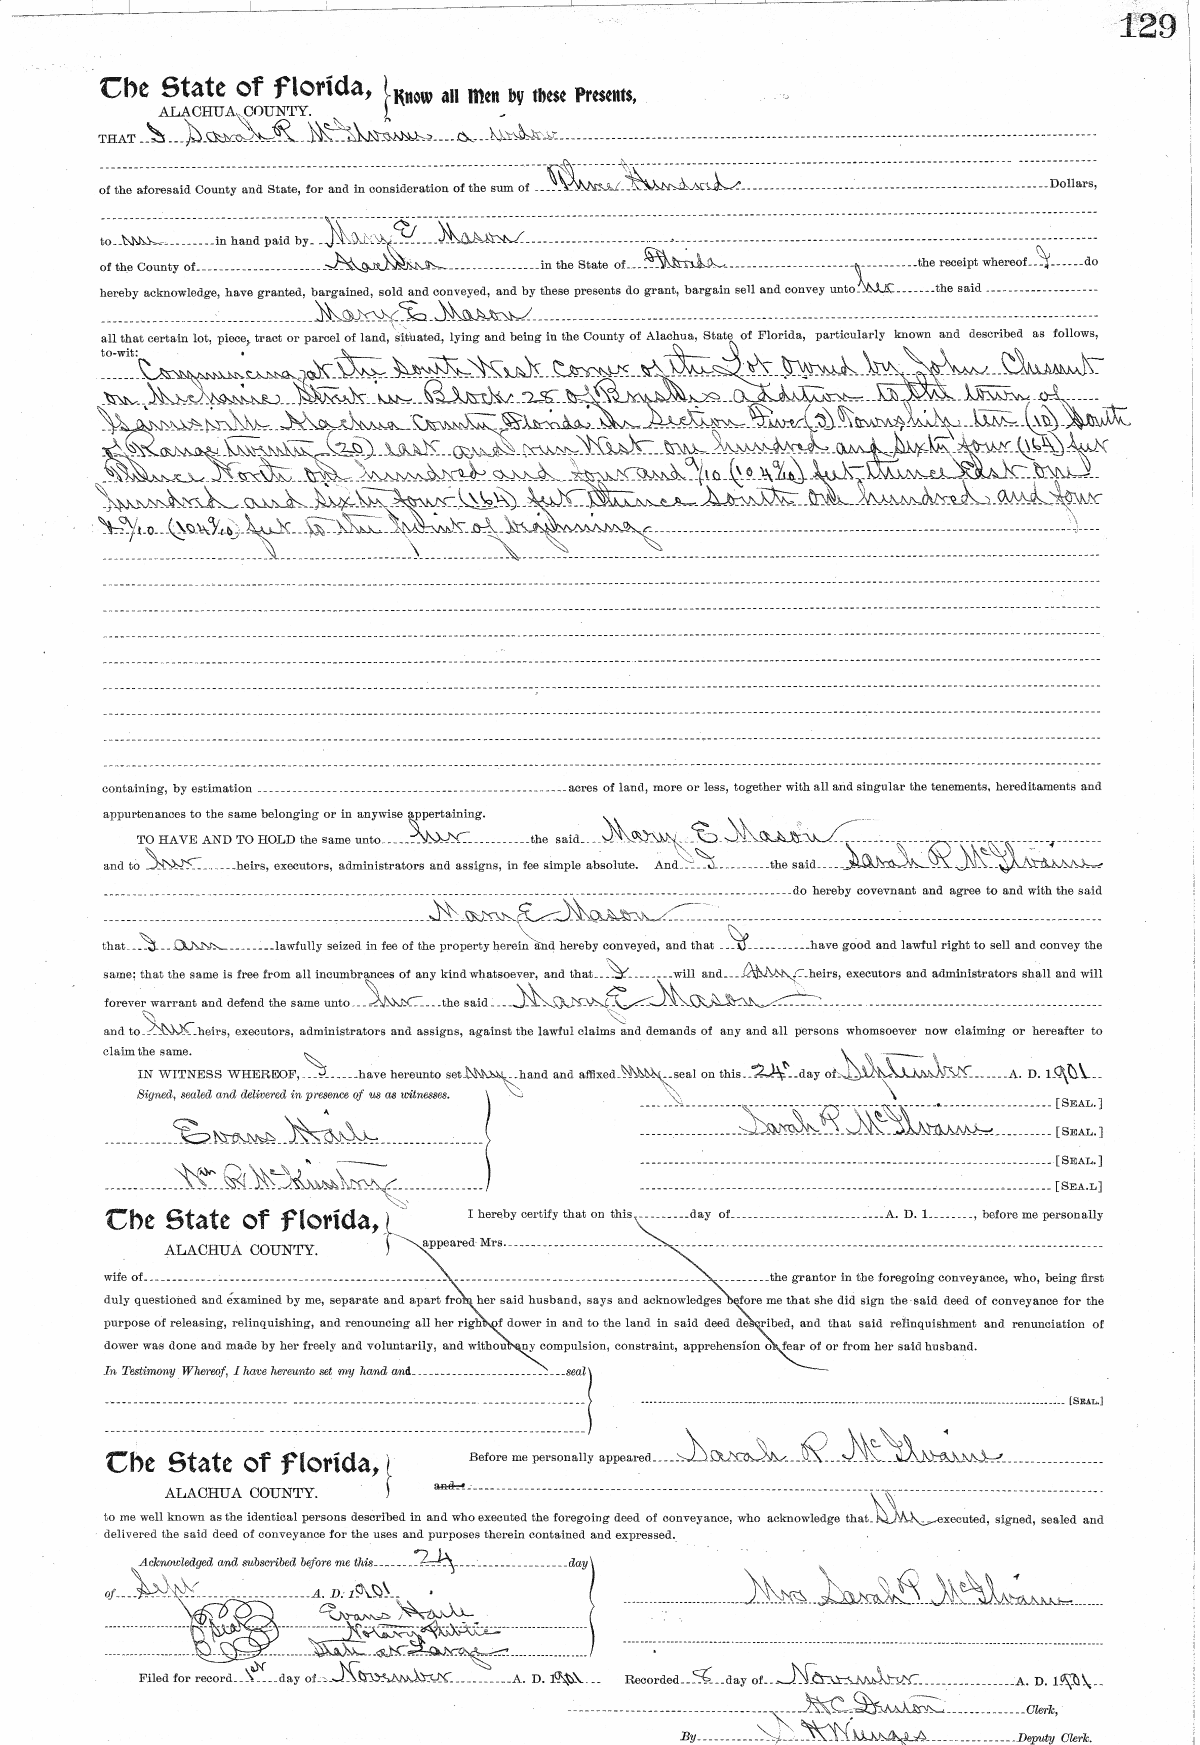 129
The State of Florida, Know all Men by these Presents,
ALACHUA COUNTY.
THAT I Sarah R McIlvaine a widow
of the aforesaid County and State, for and in consideration of the sum of Three Hundred Dollars,
to me in hand paid by Mary E Mason
of the County of Alachua in the State of Florida the receipt whereof I do
hereby acknowledge, have granted, bargained, sold and conveyed, and by these presents do grant, bargain sell and convey unto her the said
Mary E Mason
all that certain lot, piece, tract or parcel of land, situated, lying and being in the County of Alachua, State of Florida, particularly known and described as follows,
to-wit:
Commencing at the South West corner of the Lot owned by John Chesnut
on Mechanic Street in Block 28 of Brush's addition to the town of
Gainesville Alachua County Florida in Section Five (5) Township ten (10) South
of Range twenty (20) east and run West one hundred and sixty four (164) feet
Thence North one hundred and four and 9/10 (104 9/10) feet, thence East one
hundred and sixty four (164) feet thence South one hundred and four
& 9/10 (104 9/10) feet to the point of beginning
containing, by estimation acres of land, more or less, together with all and singular the tenements, hereditaments and
appurtenances to the same belonging or in anywise appertaining.
TO HAVE AND TO HOLD the same unto her the said Mary E Mason
and to her heirs, executors, administrators and assigns, in fee simple absolute. And I the said Sarah R McIlvaine
do hereby covevnant and agree to and with the said
Mary E Mason
that I am lawfully seized in fee of the property herein and hereby conveyed, and that I have good and lawful right to sell and convey the
same; that the same is free from all incumbrances of any kind whatsoever, and that I will and my heirs, executors and administrators shall and will
forever warrant and defend the same unto her the said Mary E Mason
and to her heirs, executors, administrators and assigns, against the lawful claims and demands of any and all persons whomsoever now claiming or hereafter to
claim the same.
IN WITNESS WHEREOF, I have hereunto set my hand and affixed my seal on this 24" day of September A. D. 1901
Signed, sealed and delivered in presence of us as witnesses.
[SEAL.]
Evans Haile Sarah R McIlvaine [SEAL.]
[SEAL.]
Wm R McKinstry [SEA.L]
The State of Florida, I hereby certify that on this day of A. D. 1 , before me personally
ALACHUA COUNTY. appeared Mrs.
wife of the grantor in the foregoing conveyance, who, being first
duly questioned and examined by me, separate and apart from her said husband, says and acknowledges before me that she did sign the said deed of conveyance for the
purpose of releasing, relinquishing, and renouncing all her right of dower in and to the land in said deed described, and that said relinquishment and renunciation of
dower was done and made by her freely and voluntarily, and without any compulsion, constraint, apprehension or fear of or from her said husband.
In Testimony Whereof, I have hereunto set my hand and seal
[SEAL.]
The State of Florida, Before me personally appeared Sarah R McIlvaine
ALACHUA COUNTY. and
to me well known as the identical persons described in and who executed the foregoing deed of conveyance, who acknowledge that She executed, signed, sealed and
delivered the said deed of conveyance for the uses and purposes therein contained and expressed.
Acknowledged and subscribed before me this 24 day
of Sept A. D. 1901 Mrs Sarah R McIlvaine
Evans Haile
Seal Notary Public
State at Large
Filed for record 1st day of November A. D. 1901 Recorded 8 day of November A. D. 1901
H C Denton Clerk,
By S H Wienges Deputy Clerk.